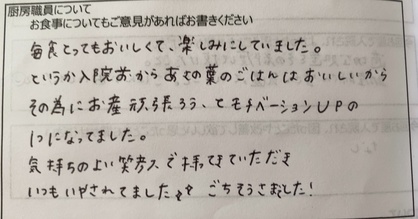 厨房職員について
お食事についてもご意見があればお書きください
毎食とってもおいしくて、楽しみにしていました。
というか入院前からあさの葉のごはんはおいしいから
その為にお産頑張ろう、とモチベーションUPの
1つになってました。
気持ちのよい笑顔で持ってきていただき
いつもいやされてました ごちそうさまでした!